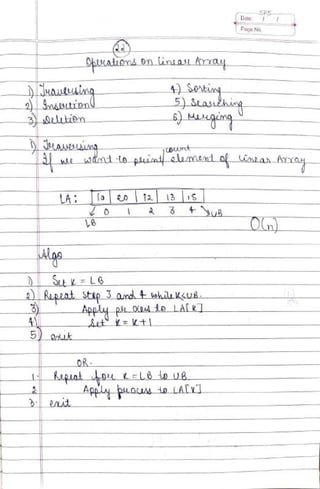 Date: / /
Page No.
22
Operations on Linear Array
1) Traversing 4) Sorting
2) Insertion 5) Searching
3) Deletion 6) Merging
1) Traversing
count
If we want to print element of Linear Array
LA: 10 20 12 13 15
0 1 2 3 4 UB
LB
O(n)
Algo
1) Set K = LB
2) Repeat Step 3 and 4 while K≤UB.
3) Apply process to LA[K]
4) Set K = K+1
5) exit
OR.
1. Repeat for K = LB to UB
2 Apply process to LA[K].
3. exit